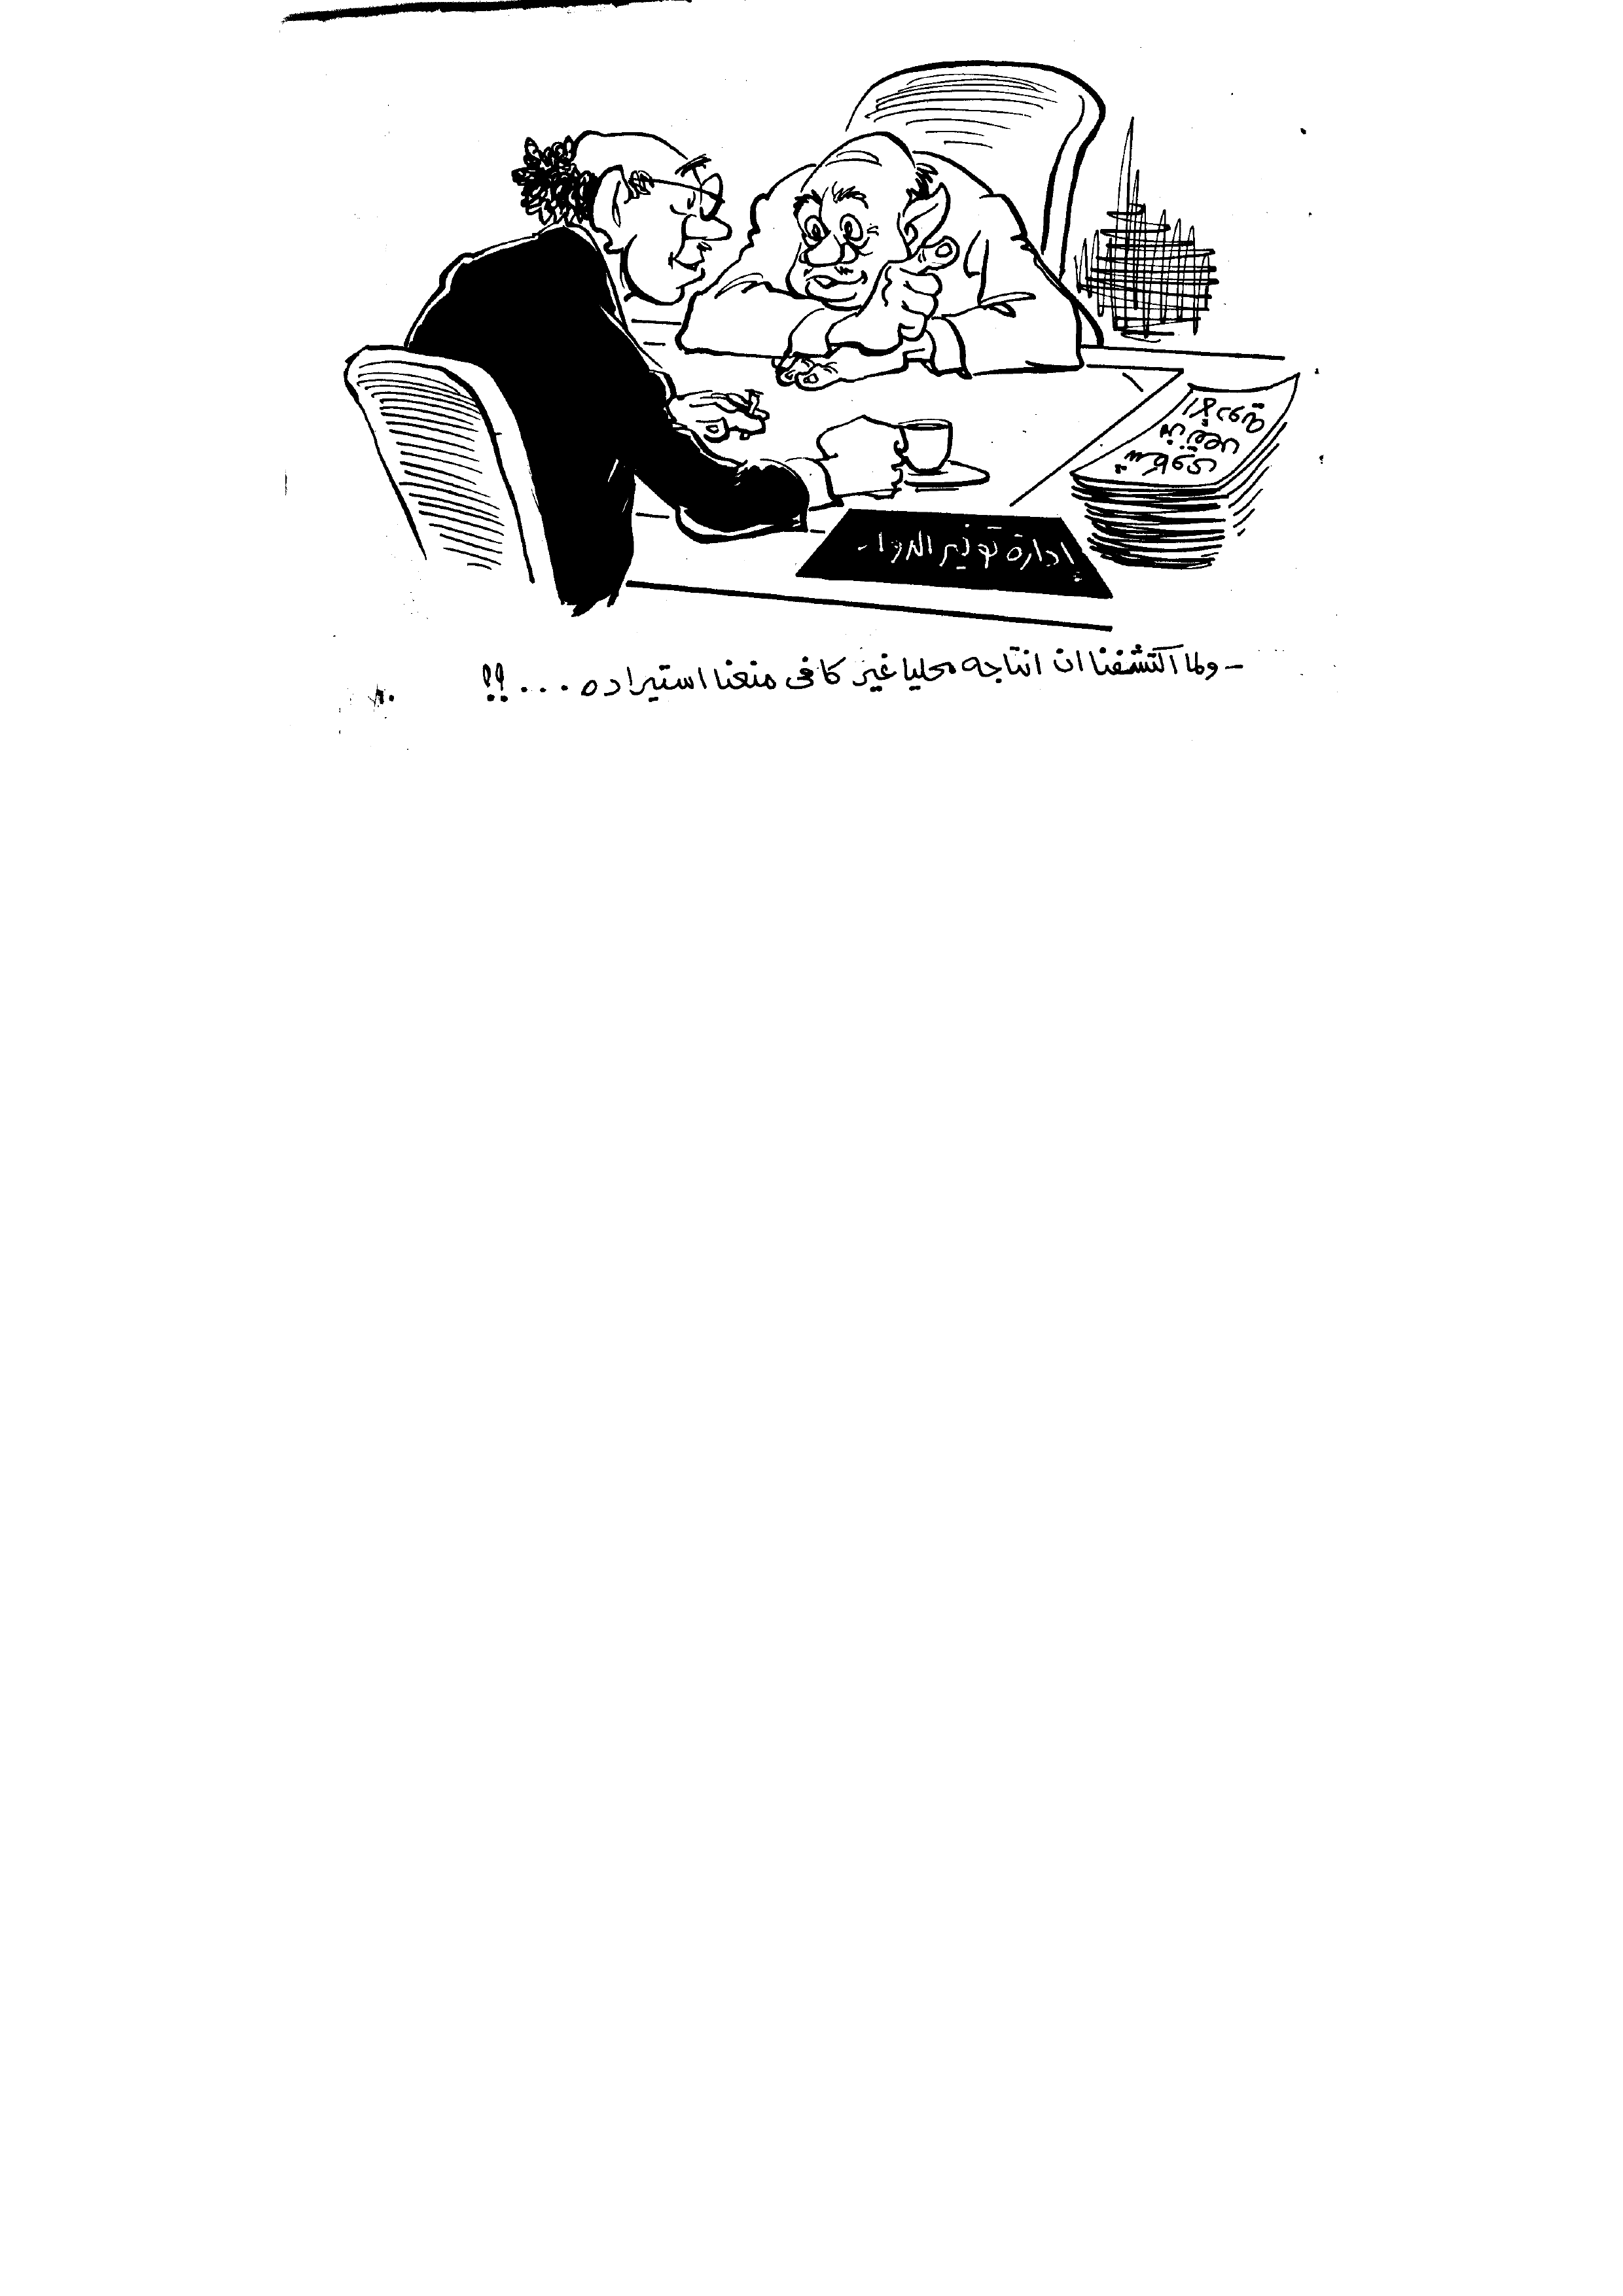 إدارة توفير الدواء
– ولما اكتشفنا ان انتاجه محليا غير كافى منعنا استيراده ...؟؟